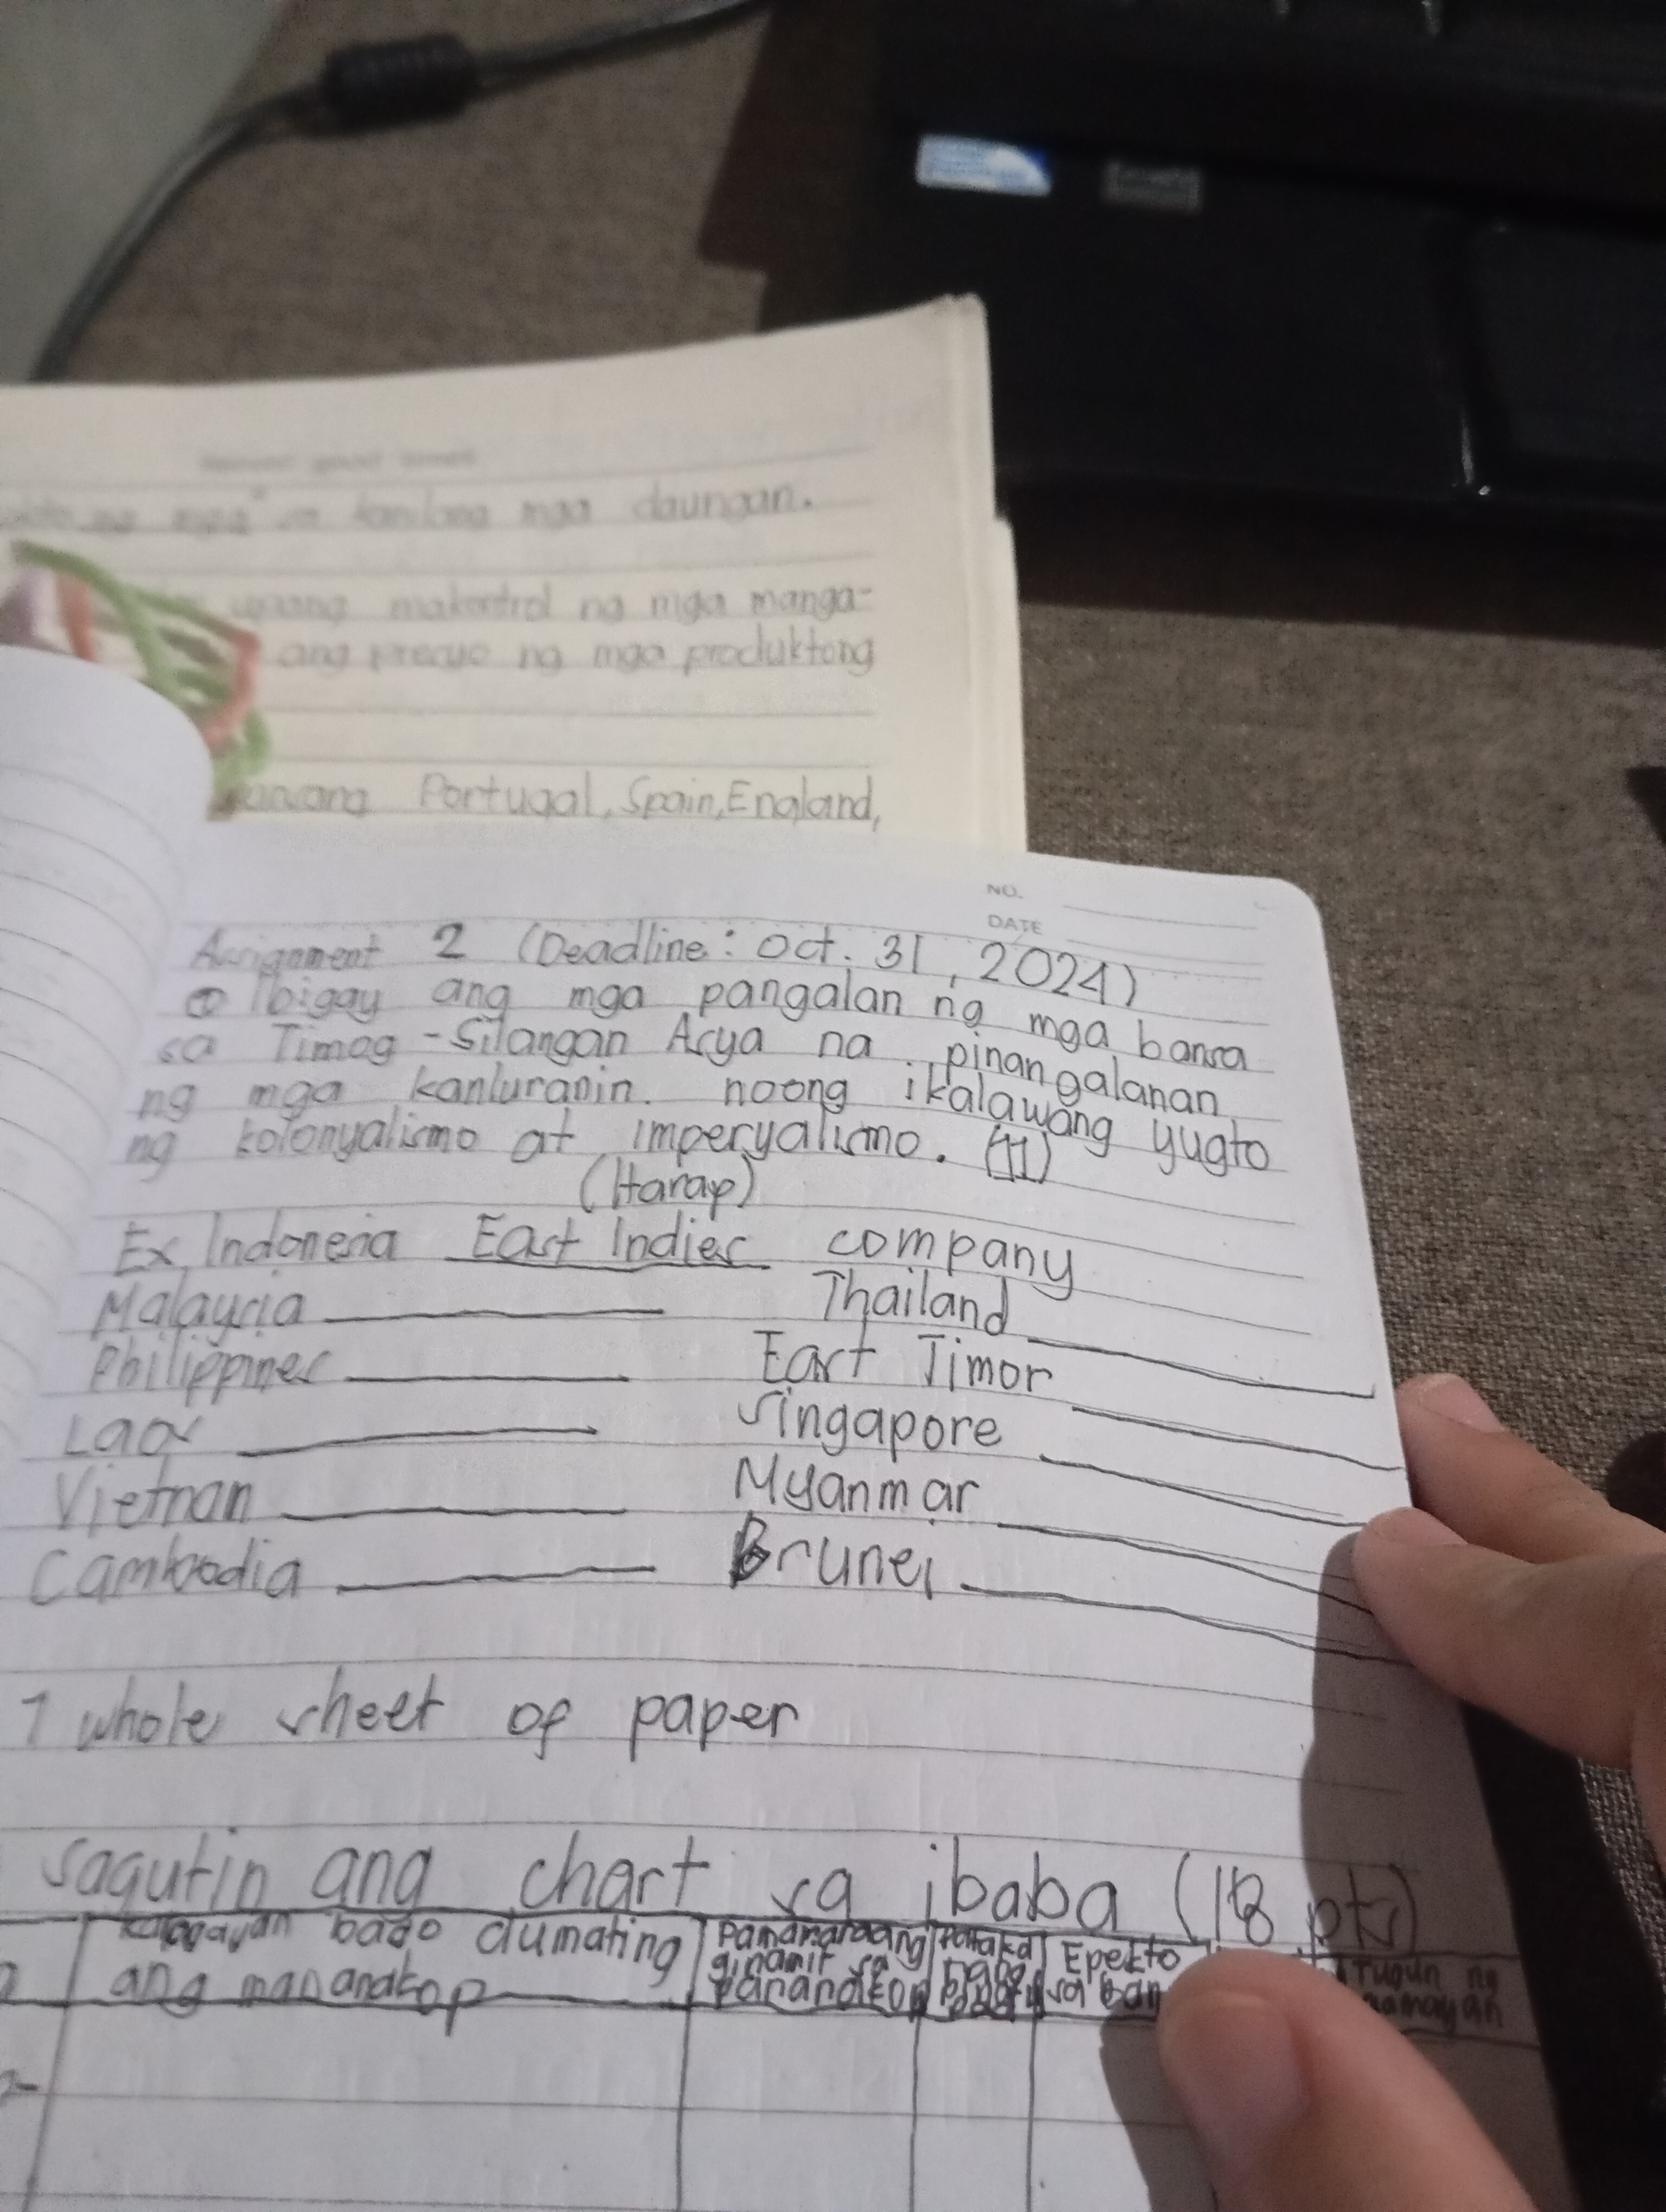 mga daungan.
upang makontrol ng mga manga-
ang presyo ng mga produktong
Portugal, Spain, England,
NO.
DATE
Assignment 2 (Deadline: Oct. 31, 2024)
① Ibigay ang mga pangalan ng mga bansa
sa Timog-Silangan Asya na pinangalanan
ng mga kanluranin. noong ikalawang yugto
ng kolonyalismo at imperyalismo. (11)
(Harap)
Ex Indonesia East Indies company
Malaysia Thailand
Philippines East Timor
Laos Singapore
Vietnam Myanmar
Cambodia Brunei
1 whole sheet of paper
sagutin ang chart sa ibaba (18 pts)
Kalagayan bago dumating
ang mananakop
Pamamaraang
ginamit sa
pananakop
Epekto
sa ban
Tugun ng
mamayan